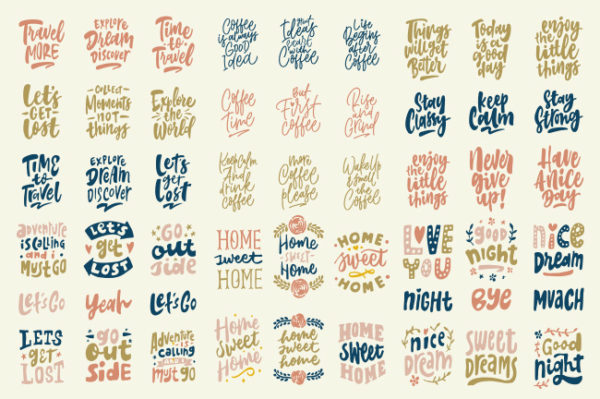 Travel
MORE
EXPLORE
Dream
DISCOVER
Time
to
Travel
Coffee
is always
GOOD
Idea
Hot
Ideas
start
with
Coffee
Life
Begins
after
Coffee
Things
will get
Better
Today
is a
good
day
enjoy
the
little
things
Let's
GET
Lost
COLLECT
MOMENTS
NOT
things
Explore
the
World
Coffee
Time
But
First
Coffee
Rise
and
Grind
Stay
Classy
keep
Calm
Stay
Strong
TIME
to
Travel
EXPLORE
DREAM
DISCOVER
Let's
get
Lost
Keep Calm
And
drink
coffee
more
Coffee
please
Wake Up
& smell
the
Coffee
enjoy
the
little
things
Never
give
up!
Have
A Nice
Day
adventure
is calling
and i
Must GO
Let's
get
LOST
GO
out
side
HOME
sweet
HOME
Home
SWEET
Home
HOME
sweet
HOME
LOVE
YOU
good
night
NICE
Dream
Let's Go
Yeah
Let's Go
NIGHT
BYE
MUACH
LETS
get
LOST
go
OUT
SIDE
Adventure
is
CALLING
AND I
must go
Home
Sweet
Home
home
sweet
home
HOME
Sweet
HOME
nice
dream
sweet
DREAMS
Good
night